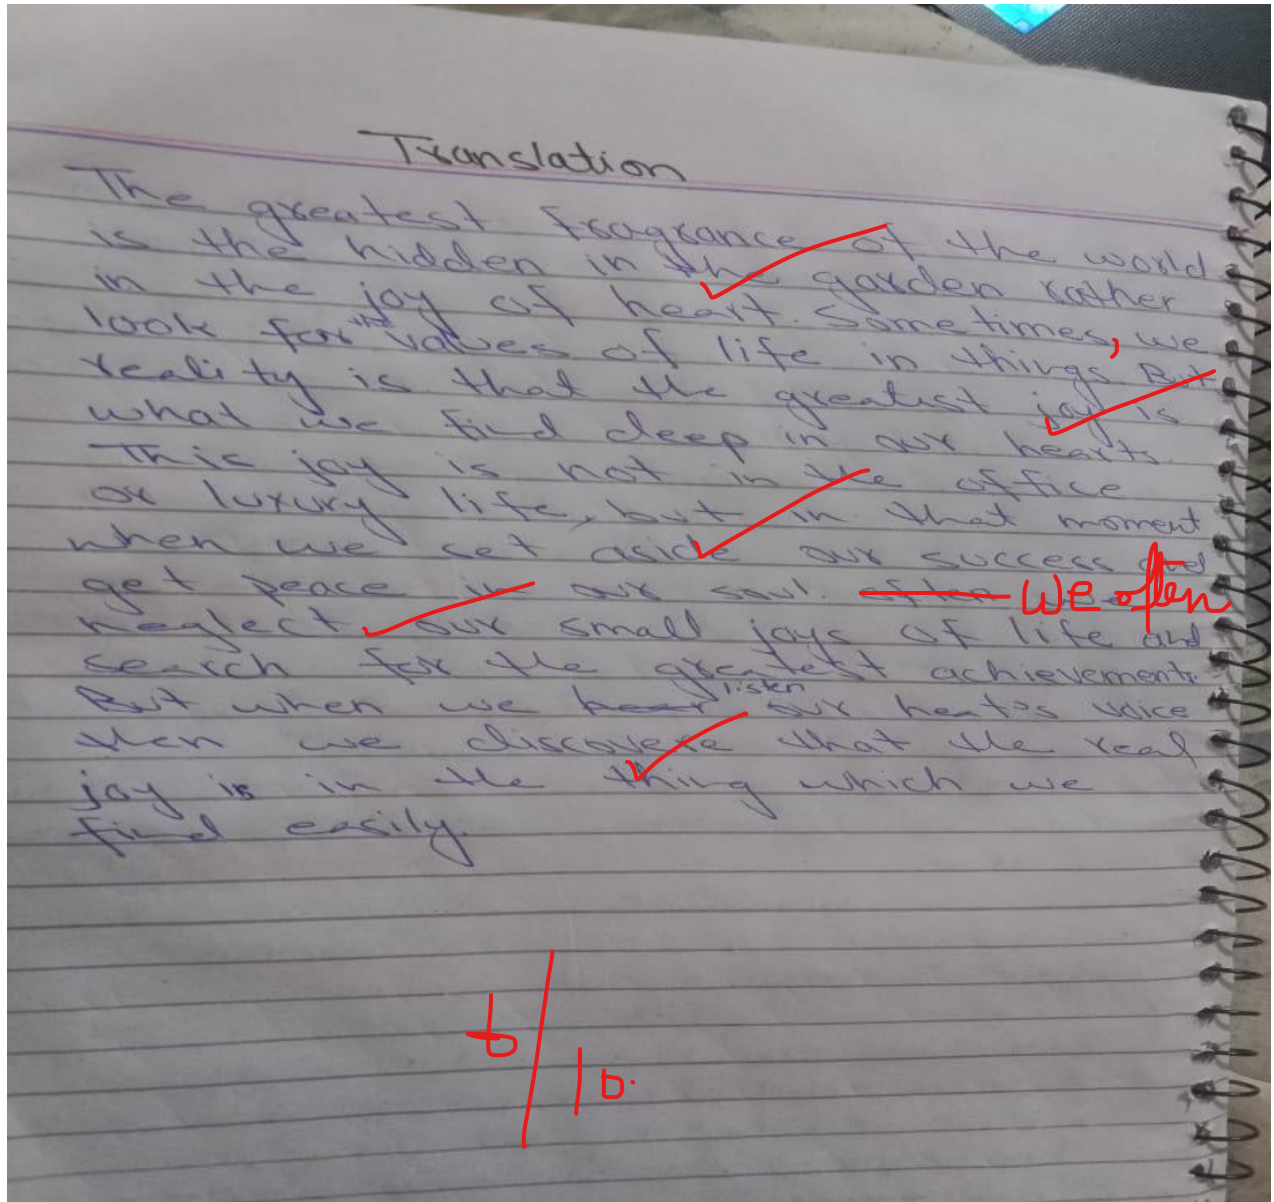 Translation
The greatest fragrance of the world
is the hidden in the garden rather
in the joy of heart. Sometimes, we
look for the values of life in things. But
reality is that the greatest joy is
what we find deep in our hearts.
This joy is not in the office
or luxury life, but in that moment
when we set aside our success and
get peace in our soul. often We often
neglect our small joys of life and
search for the greatest achievements.
But when we hear listen our heat's voice
then we discovere that the real
joy is in the thing which we
find easily.
6/10.